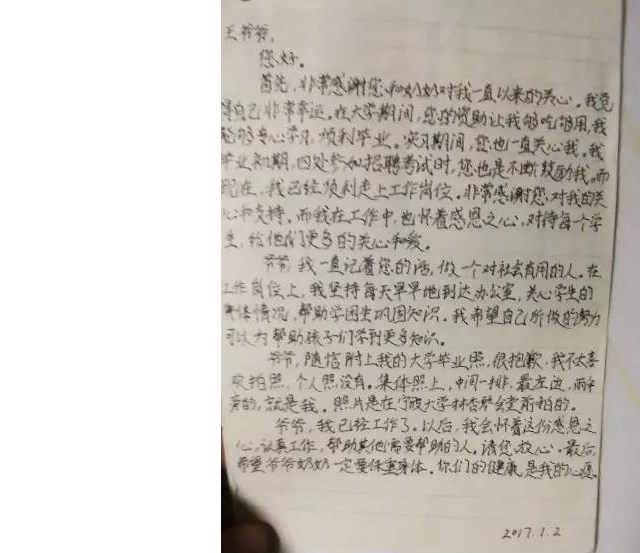 王爷爷，
您好。
首先，非常感谢您和奶奶对我一直以来的关心。我觉
得自己非常幸运。在大学期间，您的资助让我够吃够用，我
能够专心学习，顺利毕业。实习期间，您也一直关心我。我
毕业初期，四处参加招聘考试时，您也是不断鼓励我。而
现在，我已经顺利走上工作岗位。非常感谢您，对我的关
心和支持。而我在工作中，也怀着感恩之心，对待每个学
生，给他们更多的关心和爱。
爷爷，我一直记着您的话，做一个对社会有用的人。在
工作岗位上，我坚持每天早早地到达办公室，关心学生的
身体情况，帮助学困生巩固知识。我希望自己所做的努力
可以为帮助孩子们学到更多知识。
爷爷，随信附上我的大学毕业照，很抱歉，我不太喜
欢拍照，个人照没有。集体照上，中间一排，最左边，
的，就是我。照片是在宁波大学林杏琴会堂前拍的。
爷爷，我已经工作了。以后，我会怀着这份感恩之
心，认真工作，帮助其他需要帮助的人。请您放心。最后，
希望爷爷奶奶一定要保重身体。你们的健康是我的心愿。
2017.1.2